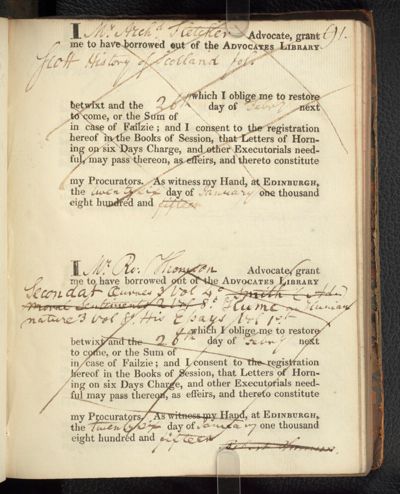 I Mr Archd Fletcher Advocate, grant 91.
me to have borrowed out of the ADVOCATES LIBRARY
Scott History of Scotland fol
which I oblige me to restore
betwixt and the 26th day of Febry next
to come, or the Sum of
in case of Failzie; and I consent to the registration
hereof in the Books of Session, that Letters of Horn-
ing on six Days Charge, and other Executorials need-
ful, may pass thereon, as effeirs, and thereto constitute
my Procurators. As witness my Hand, at EDINBURGH,
the twenty six day of January one thousand
eight hundred and fifteen
I Mr Ro. Thomson Advocate, grant
me to have borrowed out of the ADVOCATES LIBRARY
Secondat Œuvres 3 vol 4o Smith
moral sentiments 2 vol 8o Hume on Human
nature 3 vol 8o His Essays vol 1st
which I oblige me to restore
betwixt and the 26th day of Febry next
to come, or the Sum of
in case of Failzie; and I consent to the registration
hereof in the Books of Session, that Letters of Horn-
ing on six Days Charge, and other Executorials need-
ful may pass thereon, as effeirs, and thereto constitute
my Procurators. As witness my Hand, at EDINBURGH,
the twenty six day of January one thousand
eight hundred and fifteen